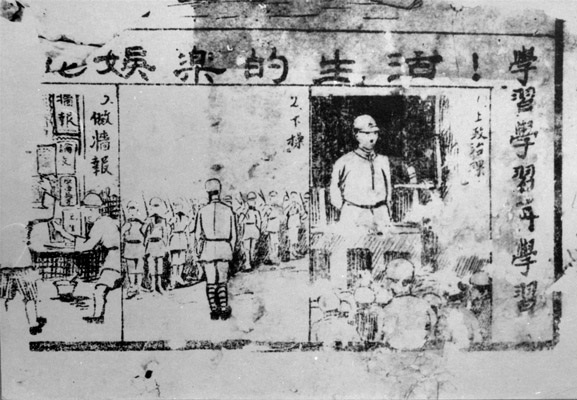 學習學習再學習
化娛樂的生活！
1.上政治課
2.下操
3.做情報
論文